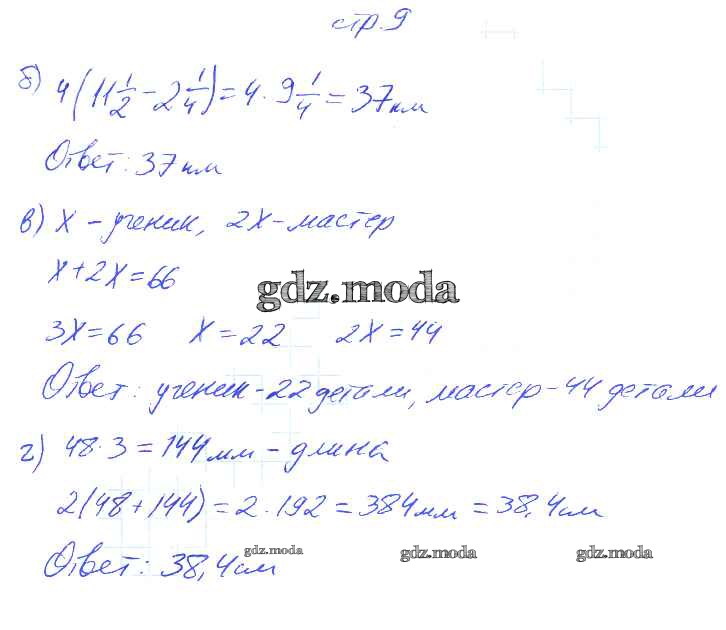 стр. 9
б) 4(11 1/2 - 2 1/4) = 4 · 9 1/4 = 37 км
Ответ: 37 км
в) x - ученик, 2x - мастер
x + 2x = 66
gdz.moda
3x = 66 x = 22 2x = 44
Ответ: ученик - 22 детали, мастер - 44 детали
г) 48 · 3 = 144 мм - длина
2(48 + 144) = 2 · 192 = 384 мм = 38,4 см
Ответ: 38,4 см
gdz.moda gdz.moda gdz.moda